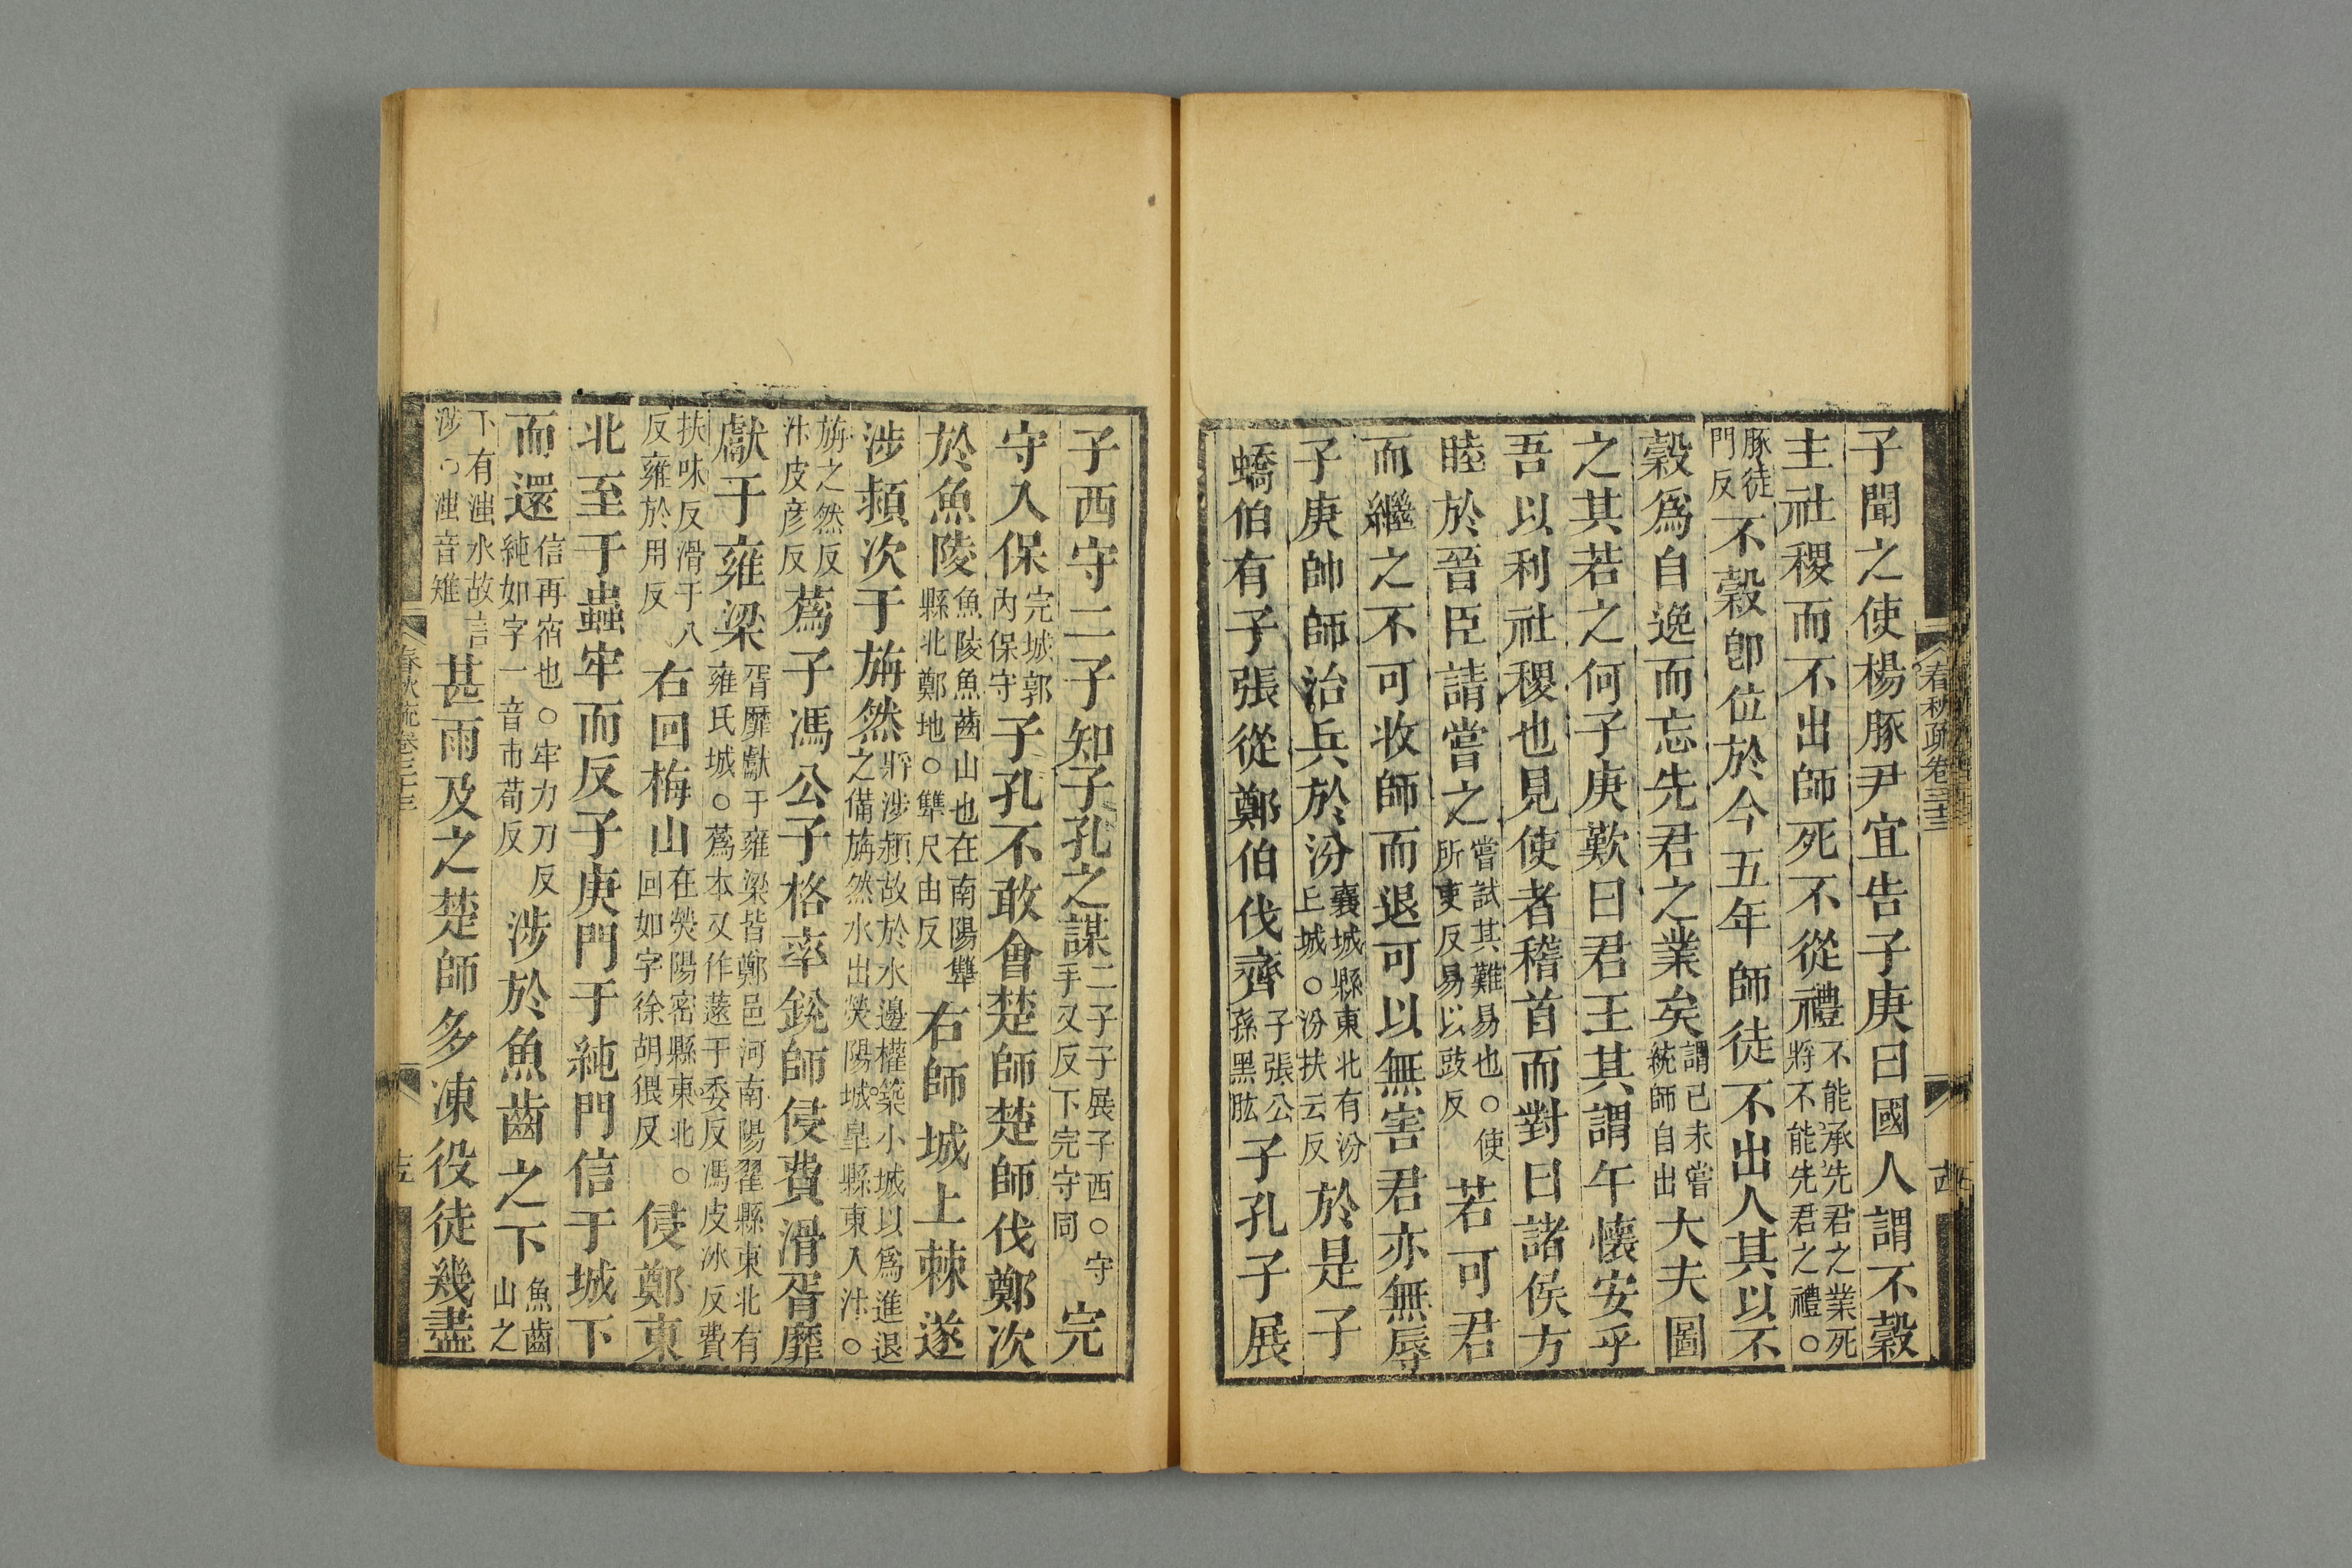 子聞之使楊豚尹宜告子庚曰國人謂不穀
主社稷而不出師死不從禮不能承先君之業死將不能先君之禮○
豚徒門反不穀卽位於今五年師徒不出人其以不
穀爲自逸而忘先君之業矣謂已未嘗統師自出大夫圖
之其若之何子庚歎曰君王其謂午懷安乎
吾以利社稷也見使者稽首而對曰諸侯方
睦於晉臣請嘗之嘗試其難易也○使所吏反易以豉反若可君
而繼之不可收師而退可以無害君亦無辱
子庚帥師治兵於汾襄城縣東北有汾上城○汾扶云反於是子
蟜伯有子張從鄭伯伐齊子張公孫黑肱子孔子展
春秋疏卷三十三
子西守二子知子孔之謀二子子展子西○守手又反下完守同完
守入保完城郭內保守子孔不敢會楚師楚師伐鄭次
於魚陵魚陵魚齒山也在南陽犨縣北鄭地○犨尺由反右師城上棘遂
涉潁次于旃然將涉潁故於水邊權築小城以爲進退之備旃然水出熒陽城皐縣東入汴○
旃之然反汴皮彦反蒍子馮公子格率銳師侵費滑胥靡
獻于雍梁胥靡獻于雍梁皆鄭邑河南陽翟縣東北有雍氏城○蒍本又作薳于委反馮皮冰反費
扶味反滑于八反雍於用反右回梅山在熒陽密縣東北○回如字徐胡猥反侵鄭東
北至于蟲牢而反子庚門于純門信于城下
而還信再宿也○牢力刀反純如字一音市荀反涉於魚齒之下魚齒山之
下有滍水故言涉○滍音雉甚雨及之楚師多凍役徒幾盡
春秋疏卷三十三